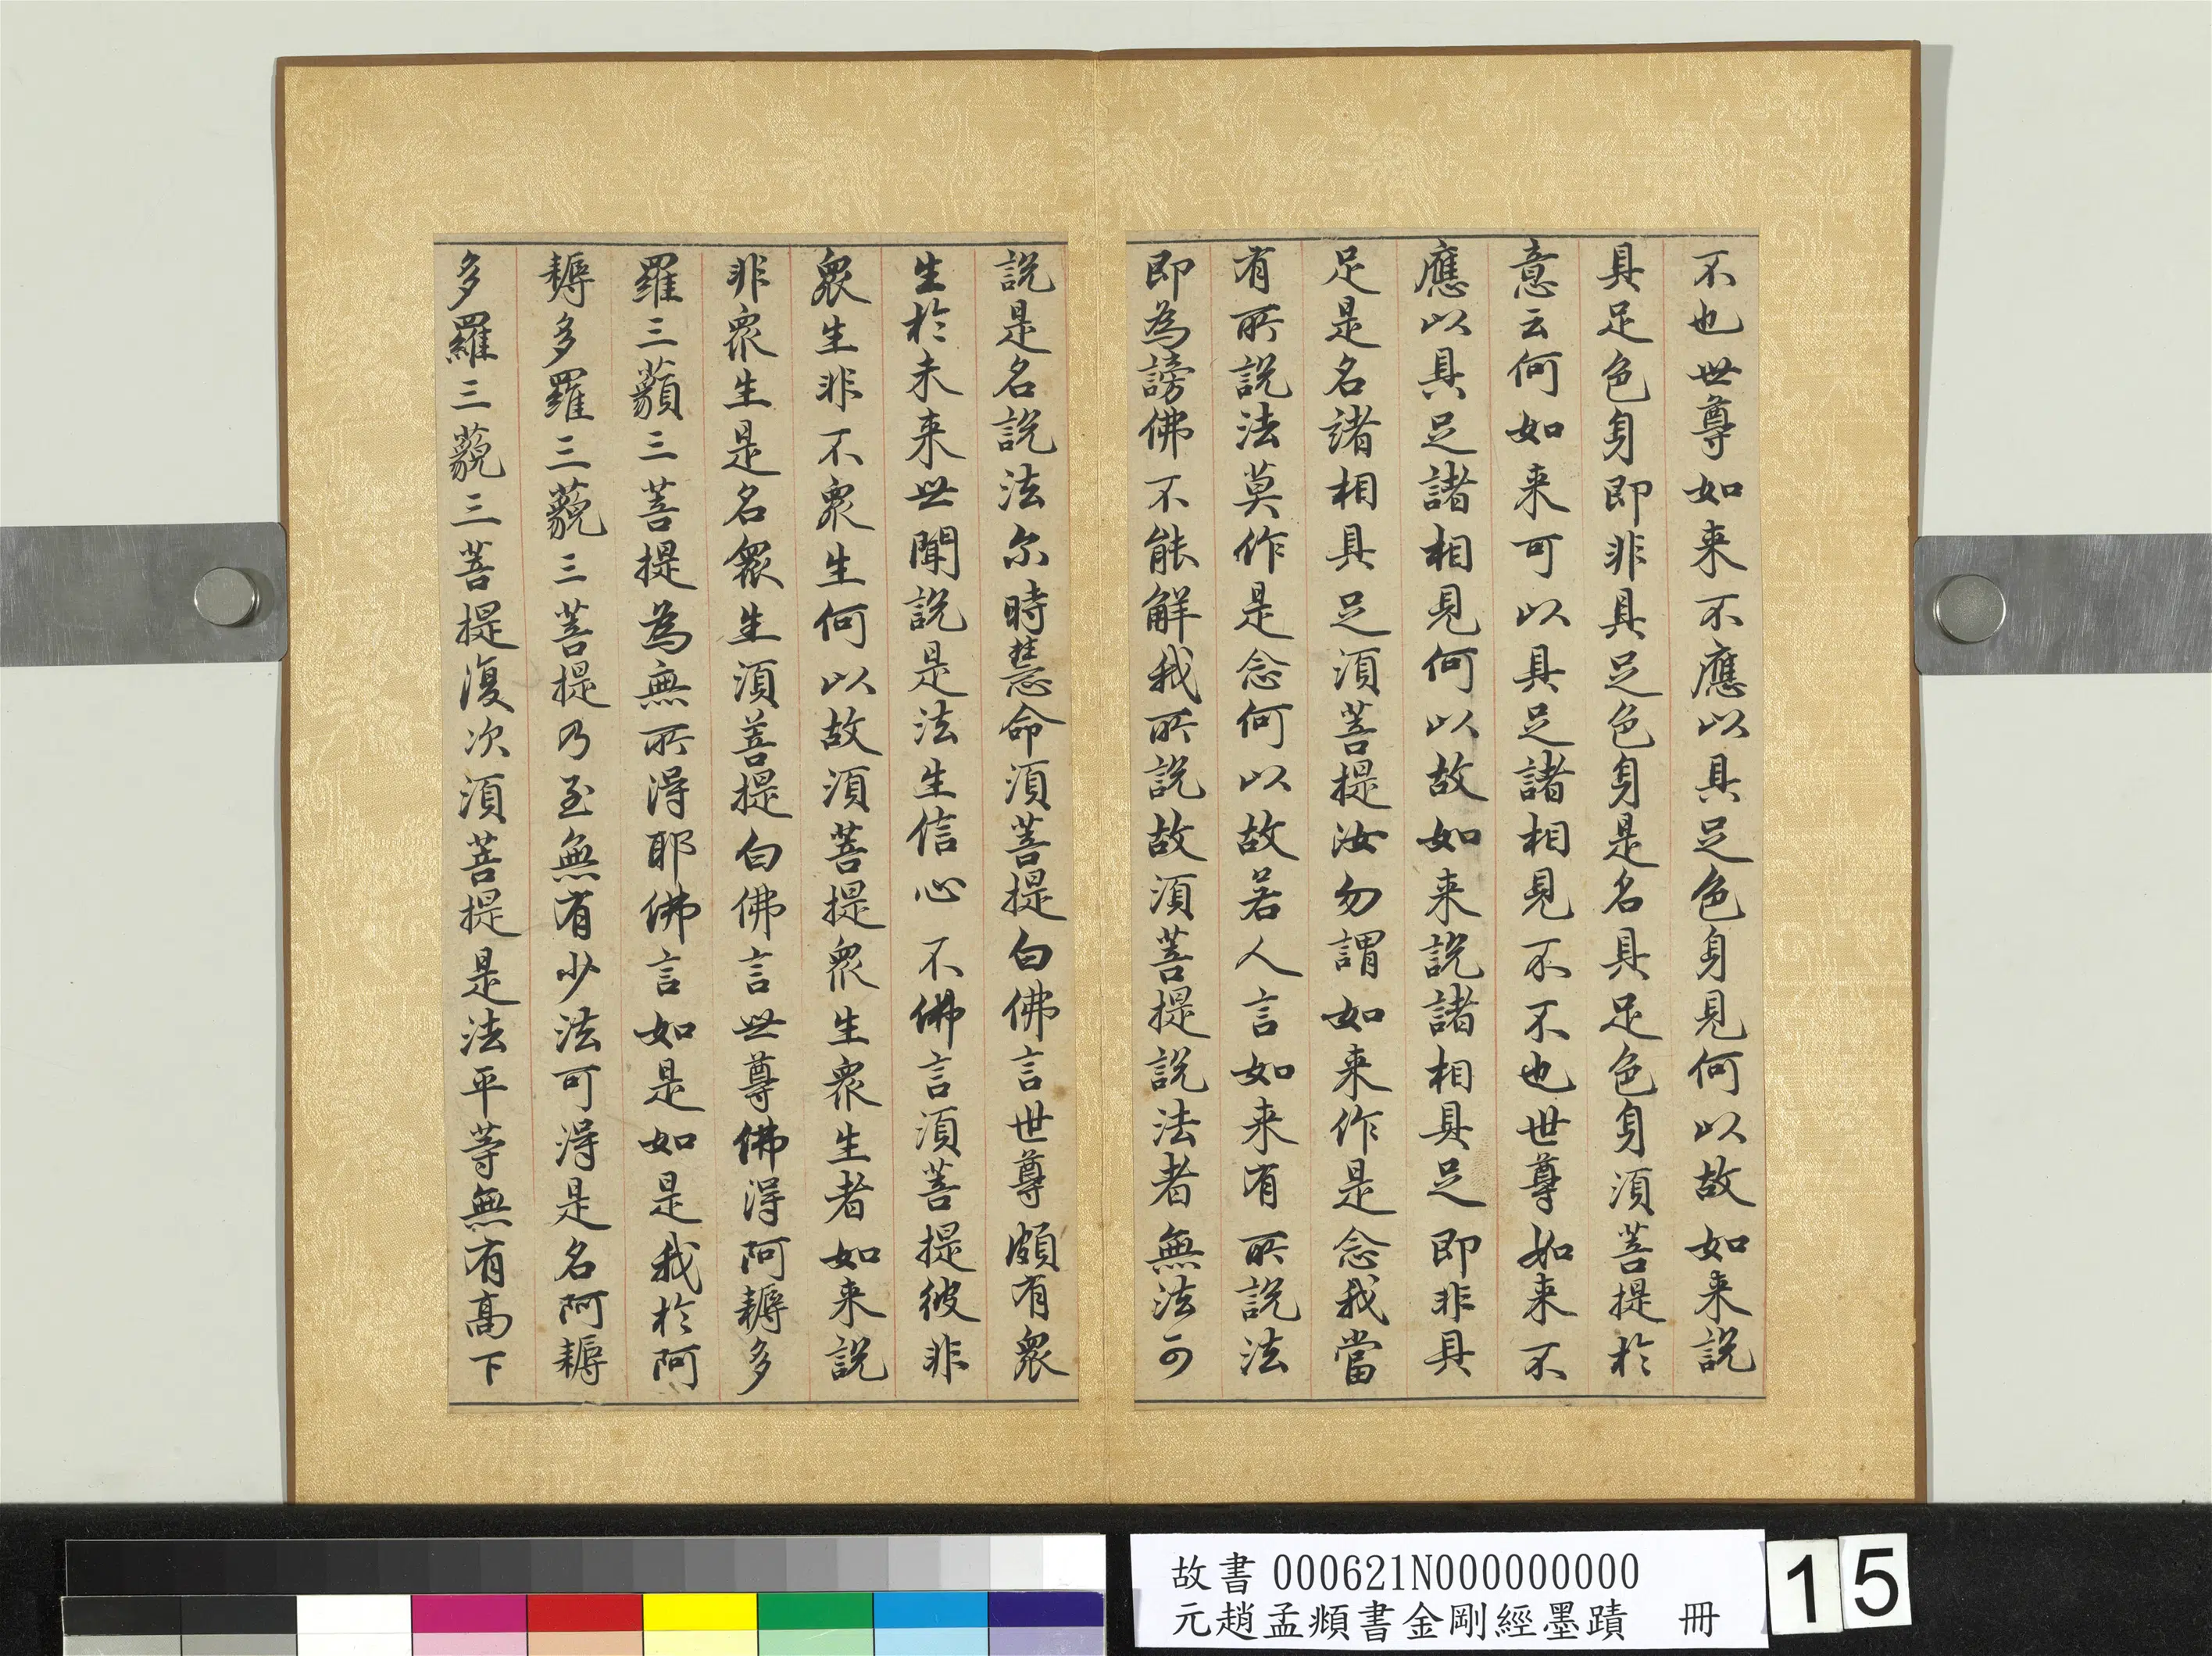 不也世尊如来不應以具足色身見何以故如来說
具足色身即非具足色身是名具足色身須菩提於
意云何如来可以具足諸相見不不也世尊如来不
應以具足諸相見何以故如来說諸相具足即非具
足是名諸相具足須菩提汝勿謂如来作是念我當
有所說法莫作是念何以故若人言如来有所說法
即為謗佛不能解我所說故須菩提說法者無法可
說是名說法尔時慧命須菩提白佛言世尊頗有衆
生於未来世聞說是法生信心不佛言須菩提彼非
衆生非不衆生何以故須菩提衆生衆生者如来說
非衆生是名衆生須菩提白佛言世尊佛得阿耨多
羅三藐三菩提為無所得耶佛言如是如是我於阿
耨多羅三藐三菩提乃至無有少法可得是名阿耨
多羅三藐三菩提復次須菩提是法平等無有高下
故書 000621N000000000
元趙孟頫書金剛經墨蹟 冊
15